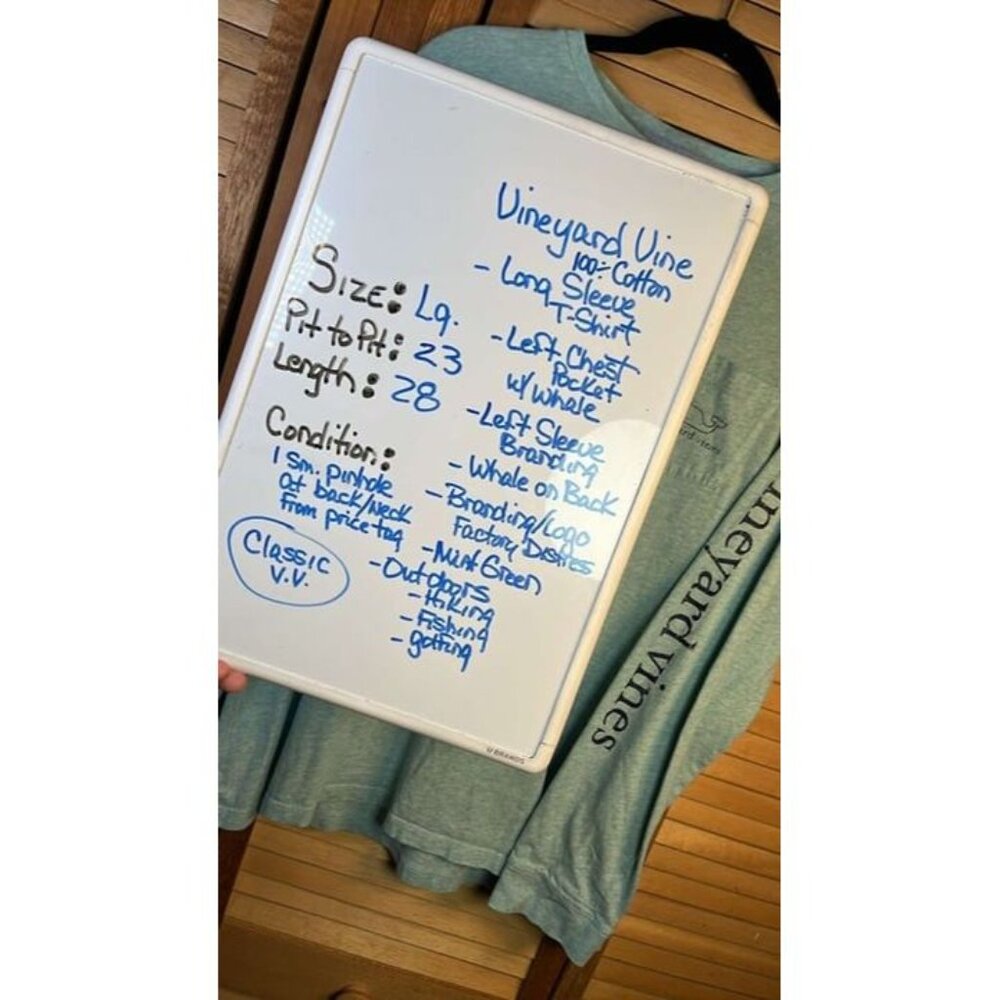 Vineyard Vine
100% Cotton
- Long Sleeve
T-Shirt
- Left Chest
Pocket
w/ Whale
- Left Sleeve
Branding
- Whale on Back
- Branding/Logo
Factory Distress
- Mint Green
- Outdoors
- Hiking
- Fishing
- golfing
Size: Lg.
Pit to Pit: 23
Length: 28
Condition:
1 Sm. pinhole
at back/neck
from price tag
Classic
V.V.
U BRANDS
vineyard vines